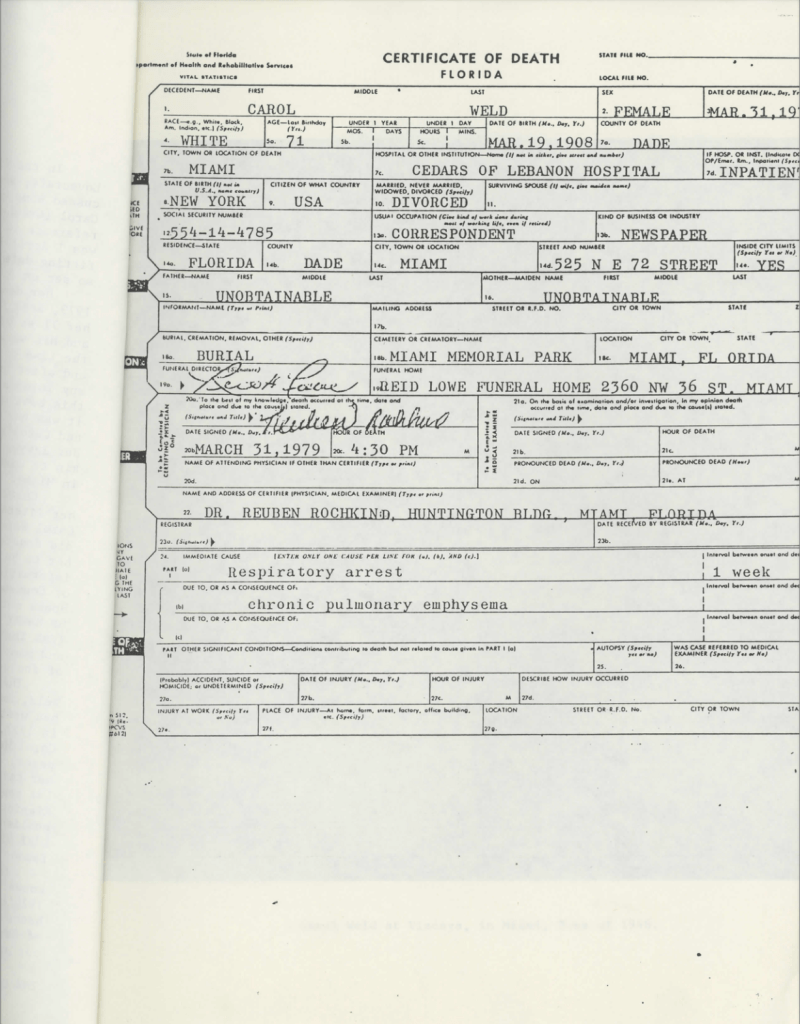 State of Florida
epartment of Health and Rehabilitative Services
VITAL STATISTICS
CERTIFICATE OF DEATH
FLORIDA
STATE FILE NO.
LOCAL FILE NO.
DECEDENT—NAME FIRST MIDDLE LAST SEX DATE OF DEATH (Mo., Day, Yr
1. CAROL WELD 2. FEMALE MAR.31,197
RACE—e.g., White, Black, Am. Indian, etc.) (Specify) AGE—Last Birthday (Yrs.) UNDER 1 YEAR UNDER 1 DAY DATE OF BIRTH (Mo., Day, Yr.) COUNTY OF DEATH
MOS. DAYS HOURS MINS.
4. WHITE 5a. 71 5b. 5c. MAR.19,1908 7a. DADE
CITY, TOWN OR LOCATION OF DEATH HOSPITAL OR OTHER INSTITUTION—Name (If not in either, give street and number) IF HOSP. OR INST. (Indicate DO OP/Emer. Rm., Inpatient (Speci
7b. MIAMI 7c. CEDARS OF LEBANON HOSPITAL 7d. INPATIEN
STATE OF BIRTH (If not in U.S.A., name country) CITIZEN OF WHAT COUNTRY MARRIED, NEVER MARRIED, WIDOWED, DIVORCED (Specify) SURVIVING SPOUSE (If wife, give maiden name)
8. NEW YORK 9. USA 10. DIVORCED 11.
SOCIAL SECURITY NUMBER USUAL OCCUPATION (Give kind of work done during most of working life, even if retired) KIND OF BUSINESS OR INDUSTRY
12. 554-14-4785 13a. CORRESPONDENT 13b. NEWSPAPER
RESIDENCE—STATE COUNTY CITY, TOWN OR LOCATION STREET AND NUMBER INSIDE CITY LIMITS (Specify Yes or No)
14a. FLORIDA 14b. DADE 14c. MIAMI 14d. 525 N E 72 STREET 14e. YES
FATHER—NAME FIRST MIDDLE LAST MOTHER—MAIDEN NAME FIRST MIDDLE LAST
15. UNOBTAINABLE 16. UNOBTAINABLE
INFORMANT—NAME (Type or Print) MAILING ADDRESS STREET OR R.F.D. NO. CITY OR TOWN STATE
17b.
BURIAL, CREMATION, REMOVAL, OTHER (Specify) CEMETERY OR CREMATORY—NAME LOCATION CITY OR TOWN STATE
18a. BURIAL 18b. MIAMI MEMORIAL PARK 18c. MIAMI, FL ORIDA
FUNERAL DIRECTOR (Signature) FUNERAL HOME
19a. REID LOWE FUNERAL HOME 2360 NW 36 ST. MIAMI
To be Completed by CERTIFYING PHYSICIAN Only
20a. To the best of my knowledge, death occurred at the time, date and place and due to the cause(s) stated.
(Signature and Title) Reuben Rochkind
To be Completed by MEDICAL EXAMINER
21a. On the basis of examination and/or investigation, in my opinion death occurred at the time, date and place and due to the cause(s) stated.
(Signature and Title)
DATE SIGNED (Mo., Day, Yr.) HOUR OF DEATH DATE SIGNED (Mo., Day, Yr.) HOUR OF DEATH
20b. MARCH 31,1979 20c. 4:30 PM M 21b. 21c. M
NAME OF ATTENDING PHYSICIAN IF OTHER THAN CERTIFIER (Type or print) PRONOUNCED DEAD (Mo., Day, Yr.) PRONOUNCED DEAD (Hour)
20d. 21d. ON 21e. AT M
NAME AND ADDRESS OF CERTIFIER (PHYSICIAN, MEDICAL EXAMINER) (Type or print)
22. DR. REUBEN ROCHKIND, HUNTINGTON BLDG., MIAMI, FLORIDA
REGISTRAR DATE RECEIVED BY REGISTRAR (Mo., Day, Yr.)
23a. (Signature) 23b.
IMMEDIATE CAUSE [ENTER ONLY ONE CAUSE PER LINE FOR (a), (b), AND (c).] Interval between onset and dea
PART I (a) Respiratory arrest 1 week
DUE TO, OR AS A CONSEQUENCE OF: Interval between onset and dea
(b) chronic pulmonary emphysema
DUE TO, OR AS A CONSEQUENCE OF: Interval between onset and dea
(c)
PART II OTHER SIGNIFICANT CONDITIONS—Conditions contributing to death but not related to cause given in PART I (a) AUTOPSY (Specify yes or no) WAS CASE REFERRED TO MEDICAL EXAMINER (Specify Yes or No)
25. 26.
(Probably) ACCIDENT, SUICIDE or HOMICIDE; or UNDETERMINED (Specify) DATE OF INJURY (Mo., Day, Yr.) HOUR OF INJURY DESCRIBE HOW INJURY OCCURRED
27a. 27b. 27c. M 27d.
INJURY AT WORK (Specify Yes or No) PLACE OF INJURY—At home, farm, street, factory, office building, etc. (Specify) LOCATION STREET OR R.F.D. No. CITY OR TOWN STA
27e. 27f. 27g.